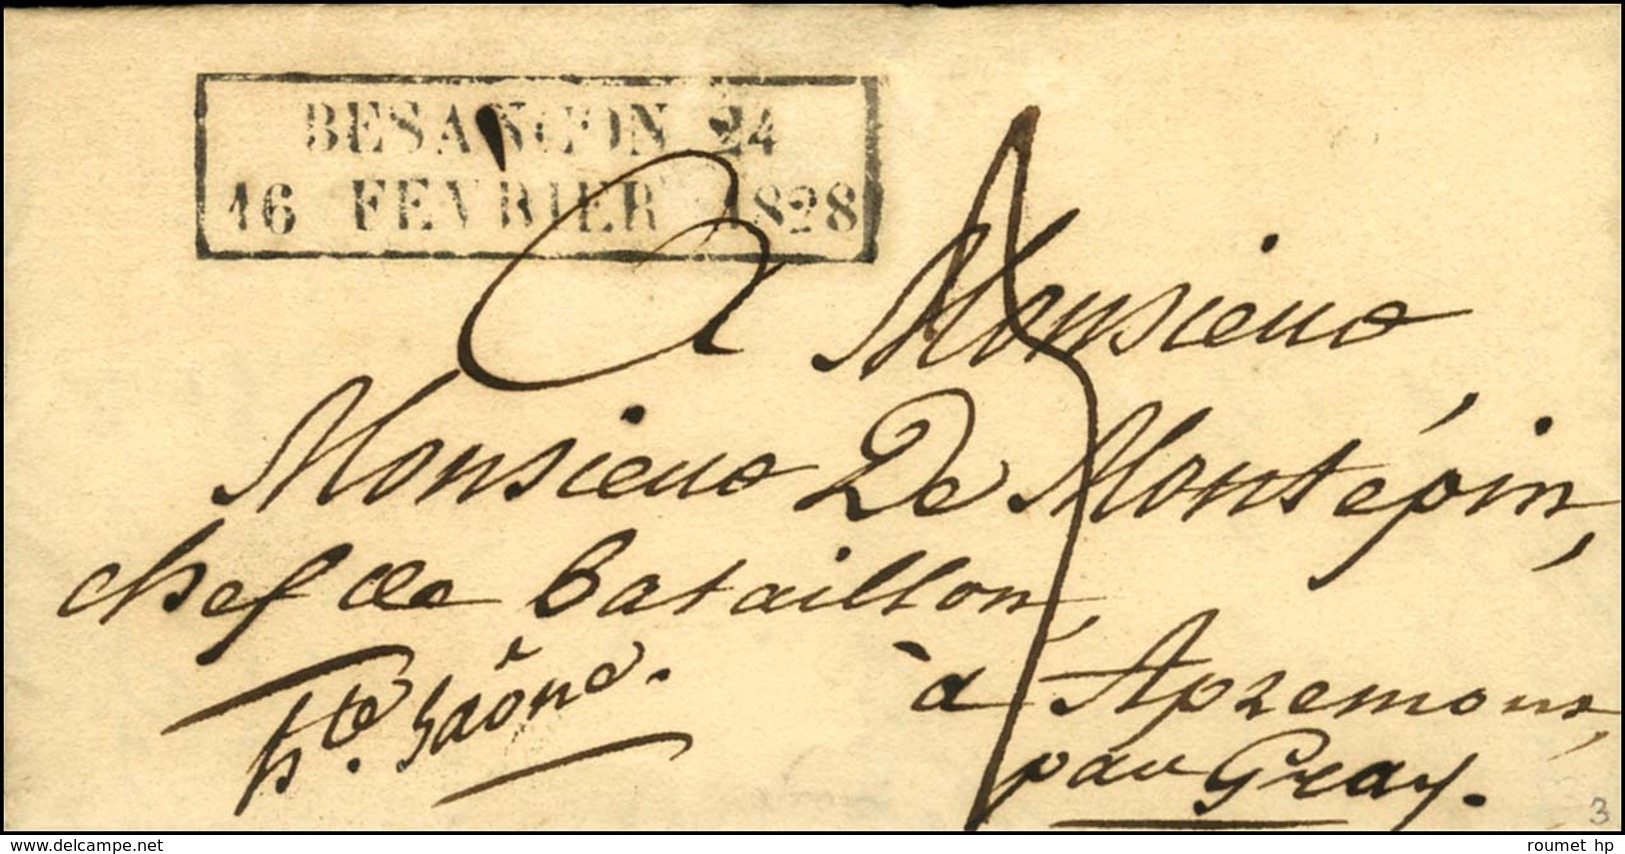 BESANCON 24
16 FEVRIER 1828
À Monsieur
Monsieur De Montépin,
chef de bataillon,
à Apremont,
par Gray.
hte. Saône.
3
delcampe.net
roumet hp